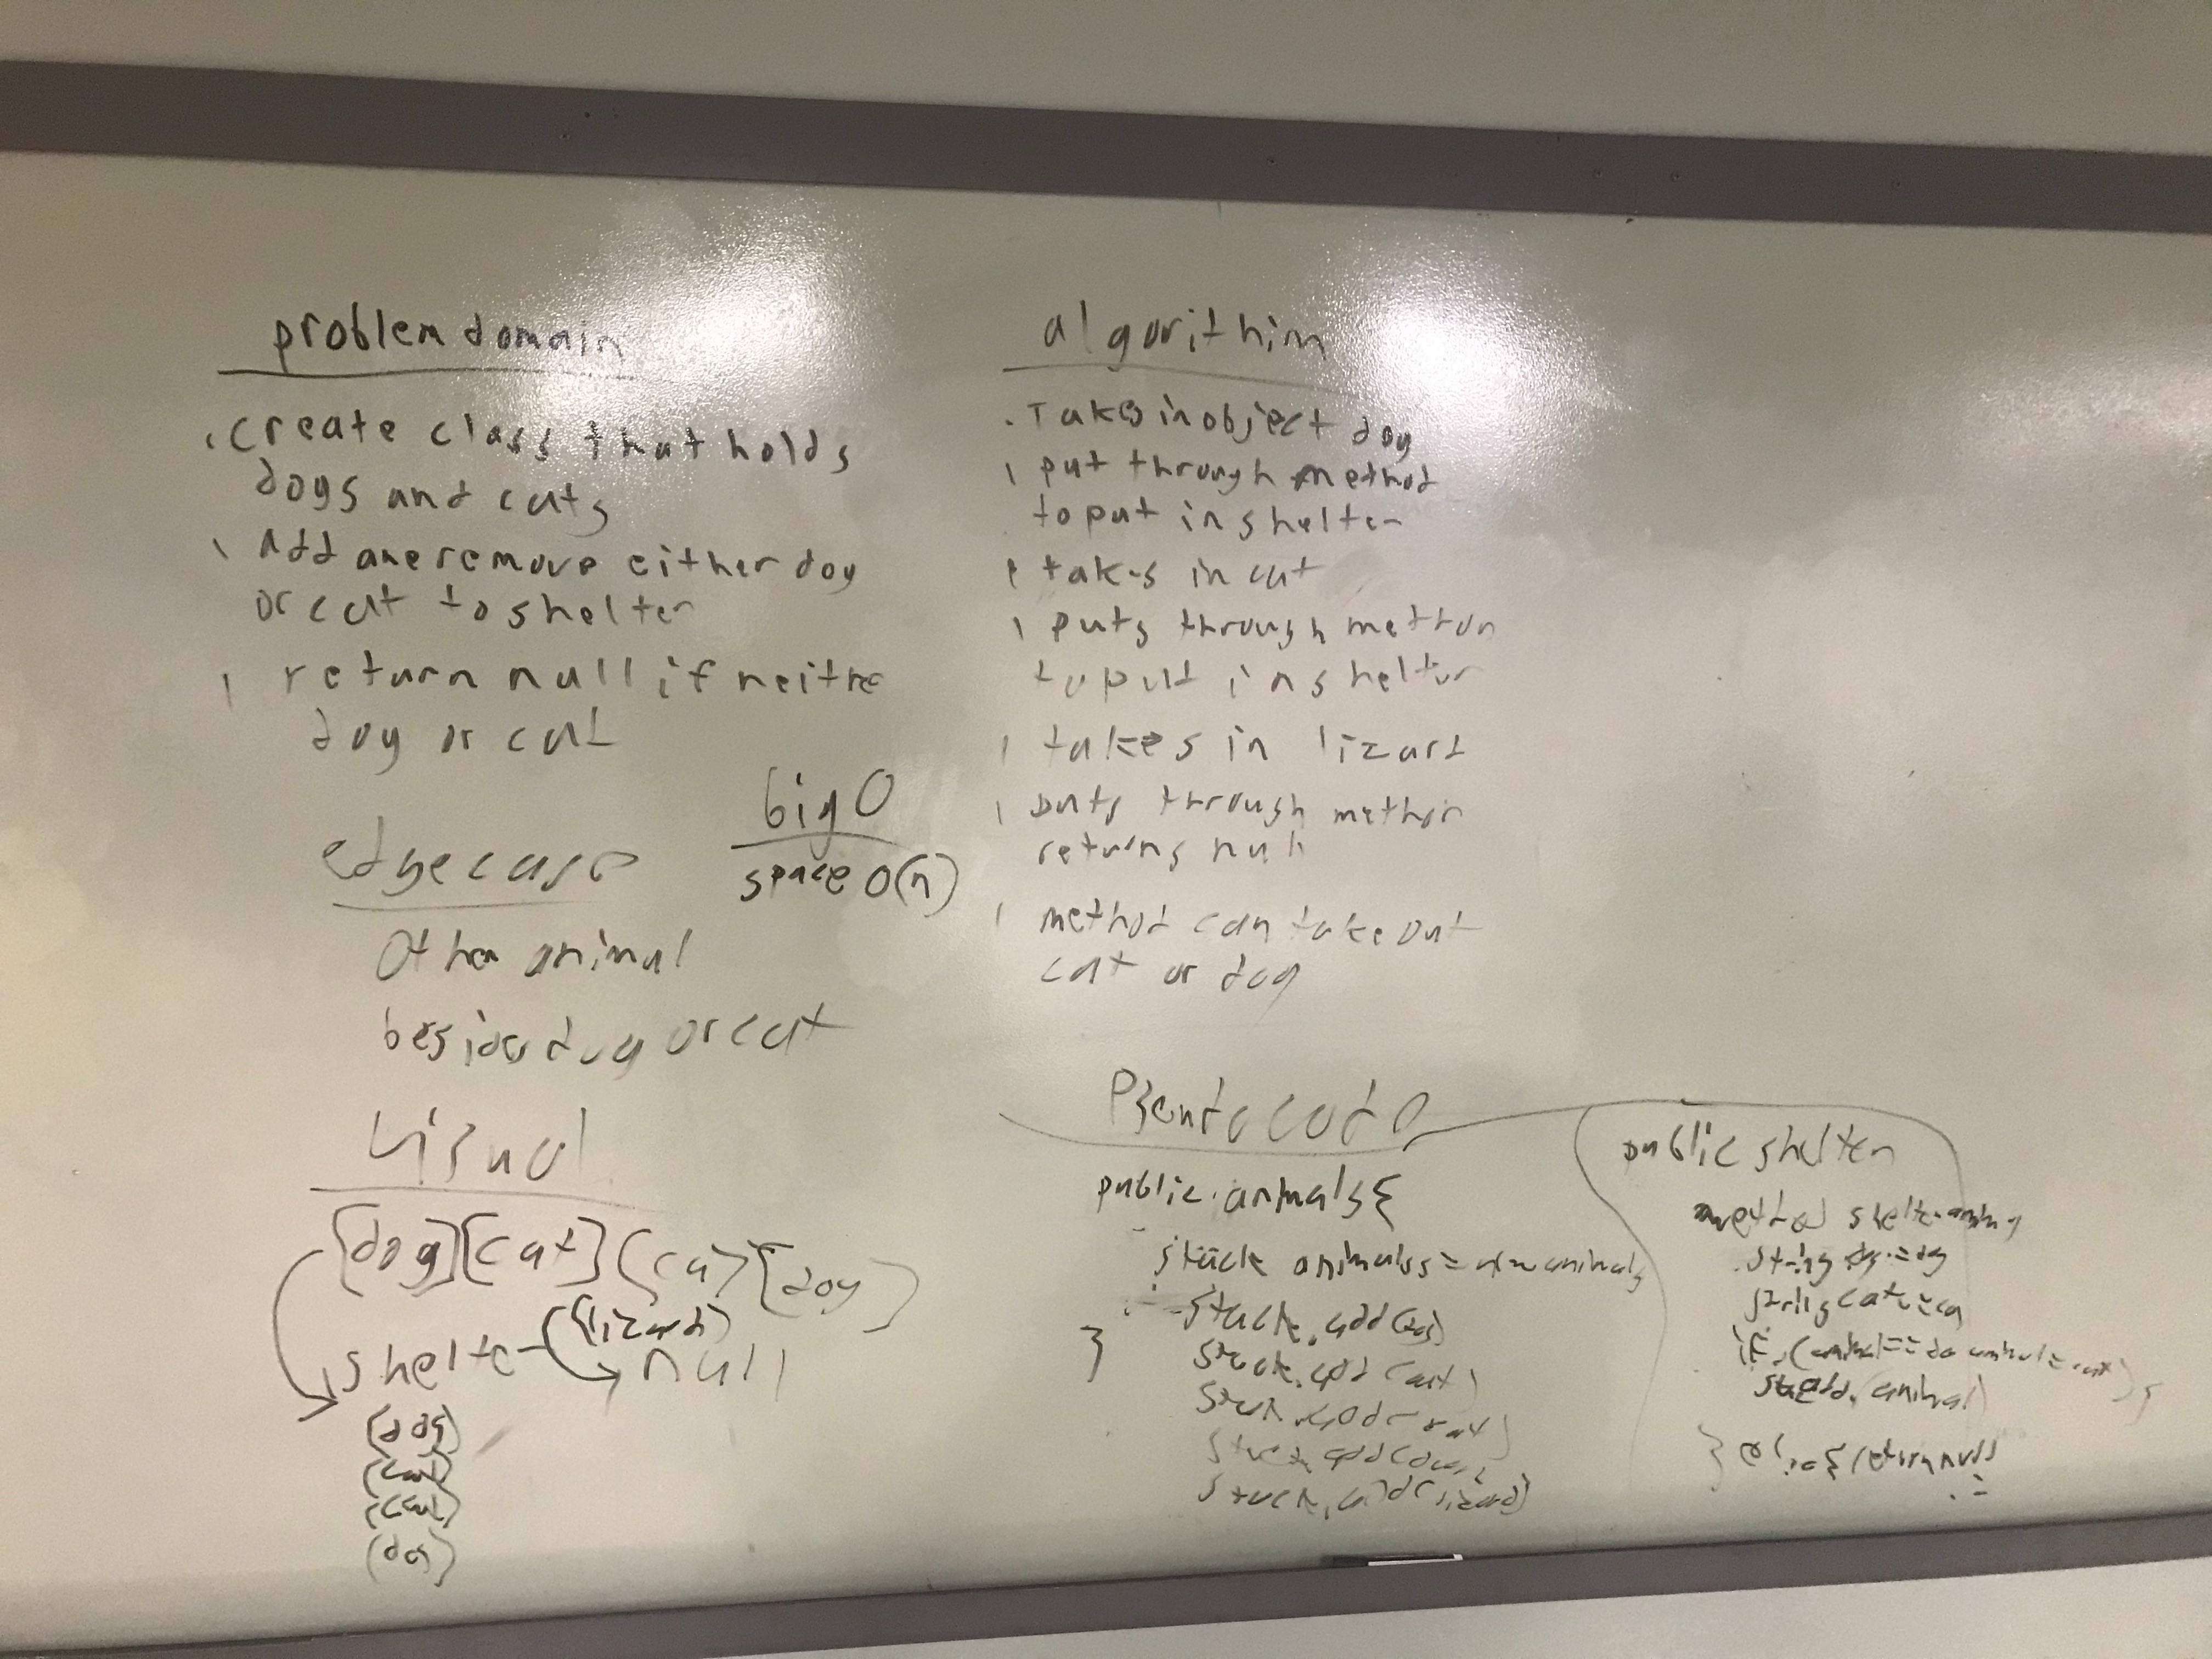 problem domain
. create class that holds
dogs and cats
. Add ane remove either dog
or cat to shelter
. return null if neithe
dog or cat
big O
space O(n)
edge case
Other animal
beside dog or cat
visual
[dog][cat][ca][dog]
shelte [lizard]
null
[dog]
[cat]
[cat]
[dog]
algorithim
. Takes in object dog
. put through method
to put in shelter
. takes in cat
. puts through method
to put in shelter
. takes in lizard
. puts through method
returns null
. method can take out
cat or dog
Pseudo code
public animals{
stack animals = new animals
stack.add(dog)
}
stack.add(cat)
stack.add(
stack.add(
stack.add(lizard)
public shelter
method shelter
string
string cat = ca
if (animal ==
animal)
} else { return null